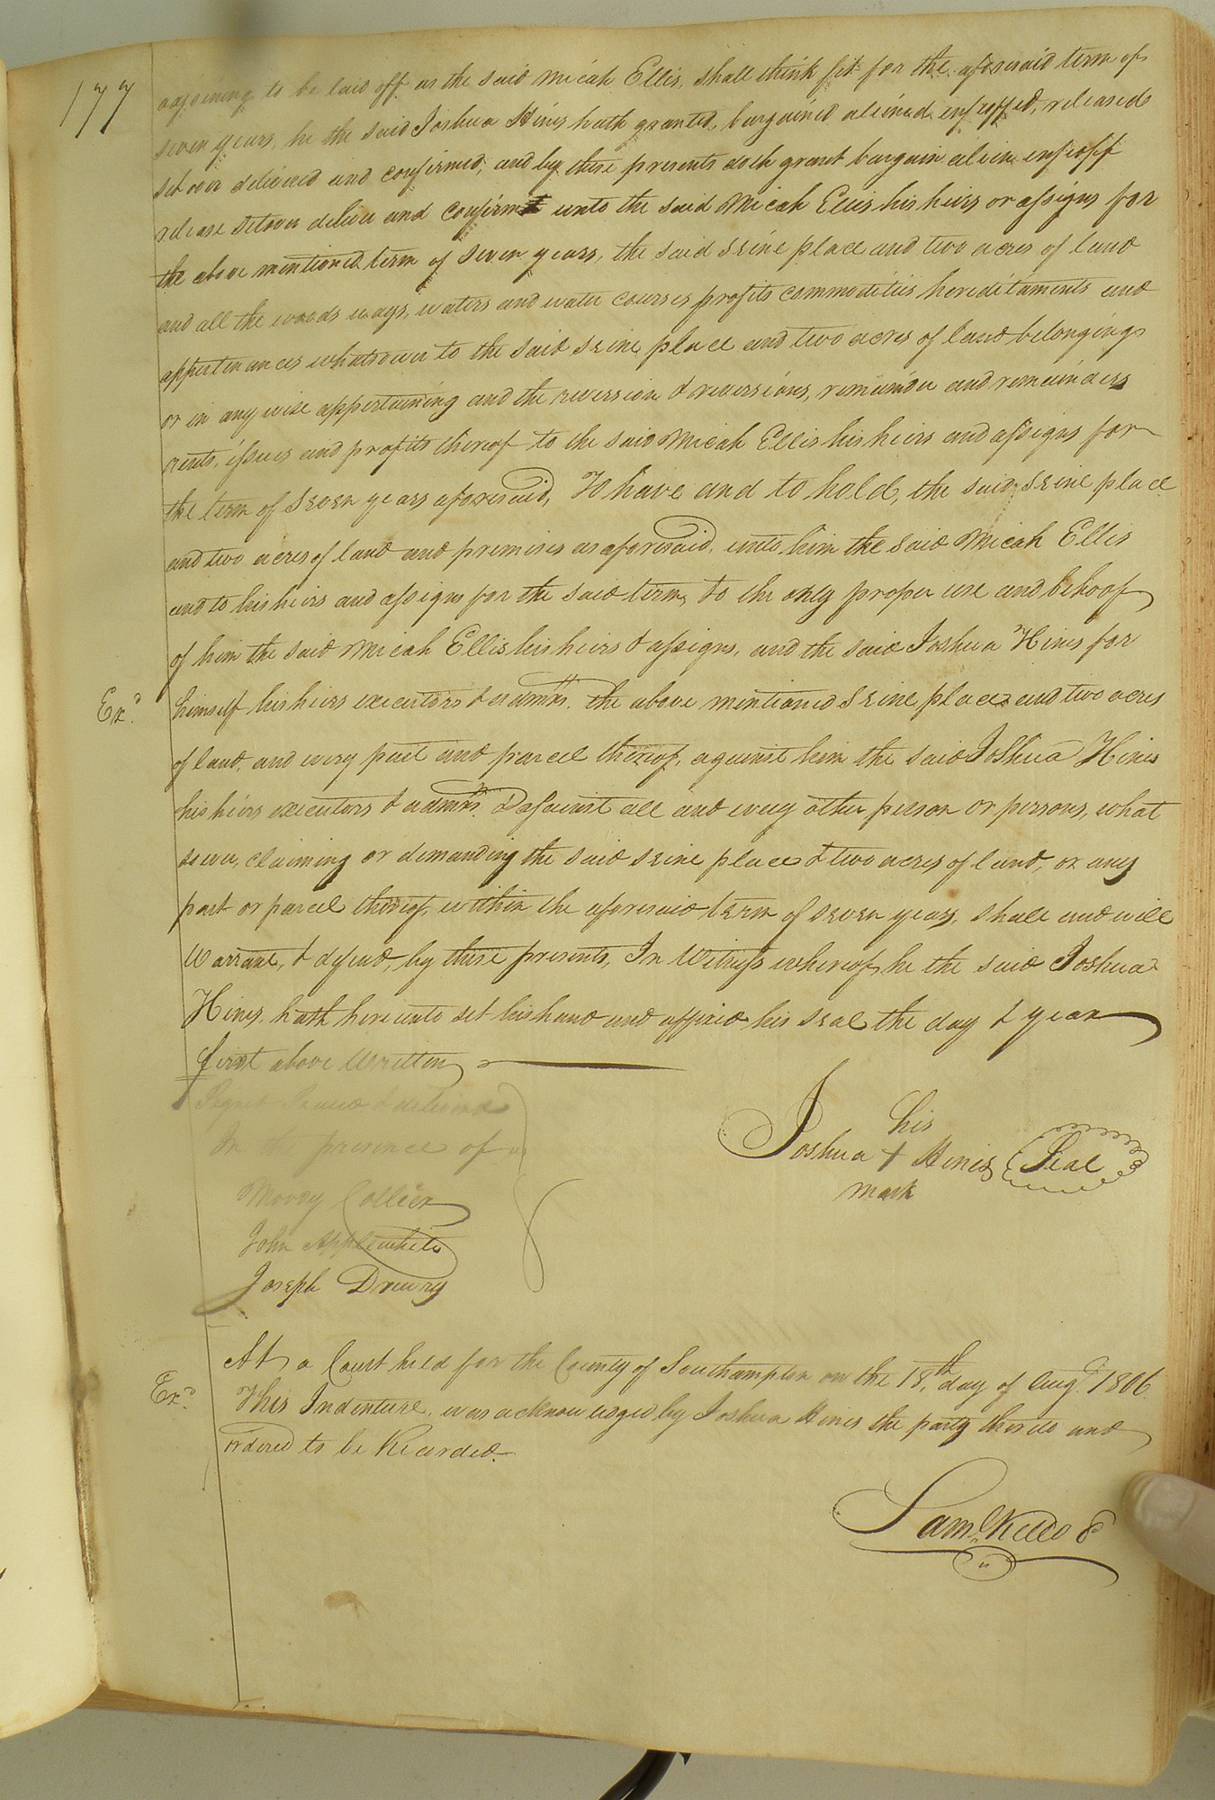 177
adjoining to be laid off as the said Micah Ellis, shall think fit for the aforesaid term of
seven years, he the said Joshua Hines hath granted, bargained aliened enfeoffed, released
set over delivered and confirmed, and by these presents doth grant bargain alein enfeoff
release setover deliver and confirm unto the said Micah Ellis his heirs or assigns for
the above mentioned term of seven years, the said seine place and two acres of land
and all the woods ways, waters and water courses profits commodities hereditaments and
appertenances whatsoever to the said seine place and two acres of land belonging
or in any wise appertaining and the reversion & reversions, remainder and remainders
rents, issues and profits thereof to the said Micah Ellis his heirs and assigns for
the term of seven years aforesaid, To have and to hold, the said seine place
and two acres of land and premises as aforesaid, unto him the said Micah Ellis
and to his heirs and assigns for the said term, to the only proper use and behoof
of him the said Micah Ellis his heirs & assigns, and the said Joshua Hines for
Exd.
himself his heirs executors & admrs. the above mentioned seine place and two acres
of land, and every part and parcel thereof, against him the said Joshua Hines
his heirs executors & admrs. & against all and every other person or persons, what
soever, claiming or demanding the said seine place & two acres of land, or any
part or parcel thereof, within the aforesaid term of seven years, shall and will
Warrant, & defend, by these presents, In Witness whereof, he the said Joshua
Hines, hath hereunto set his hand and affixed his seal the day & year
first above Written
Signed Sealed & delivered
In the presence of us
Moody Collier
John Applewhite
Joseph Drewry
his
Joshua + Hines Seal
mark
At a Court held for the County of Southampton on the 18th day of Augt. 1806
Exd.
This Indenture was acknowledged by Joshua Hines the party thereto and
ordered to be Recorded.
Saml. Kello